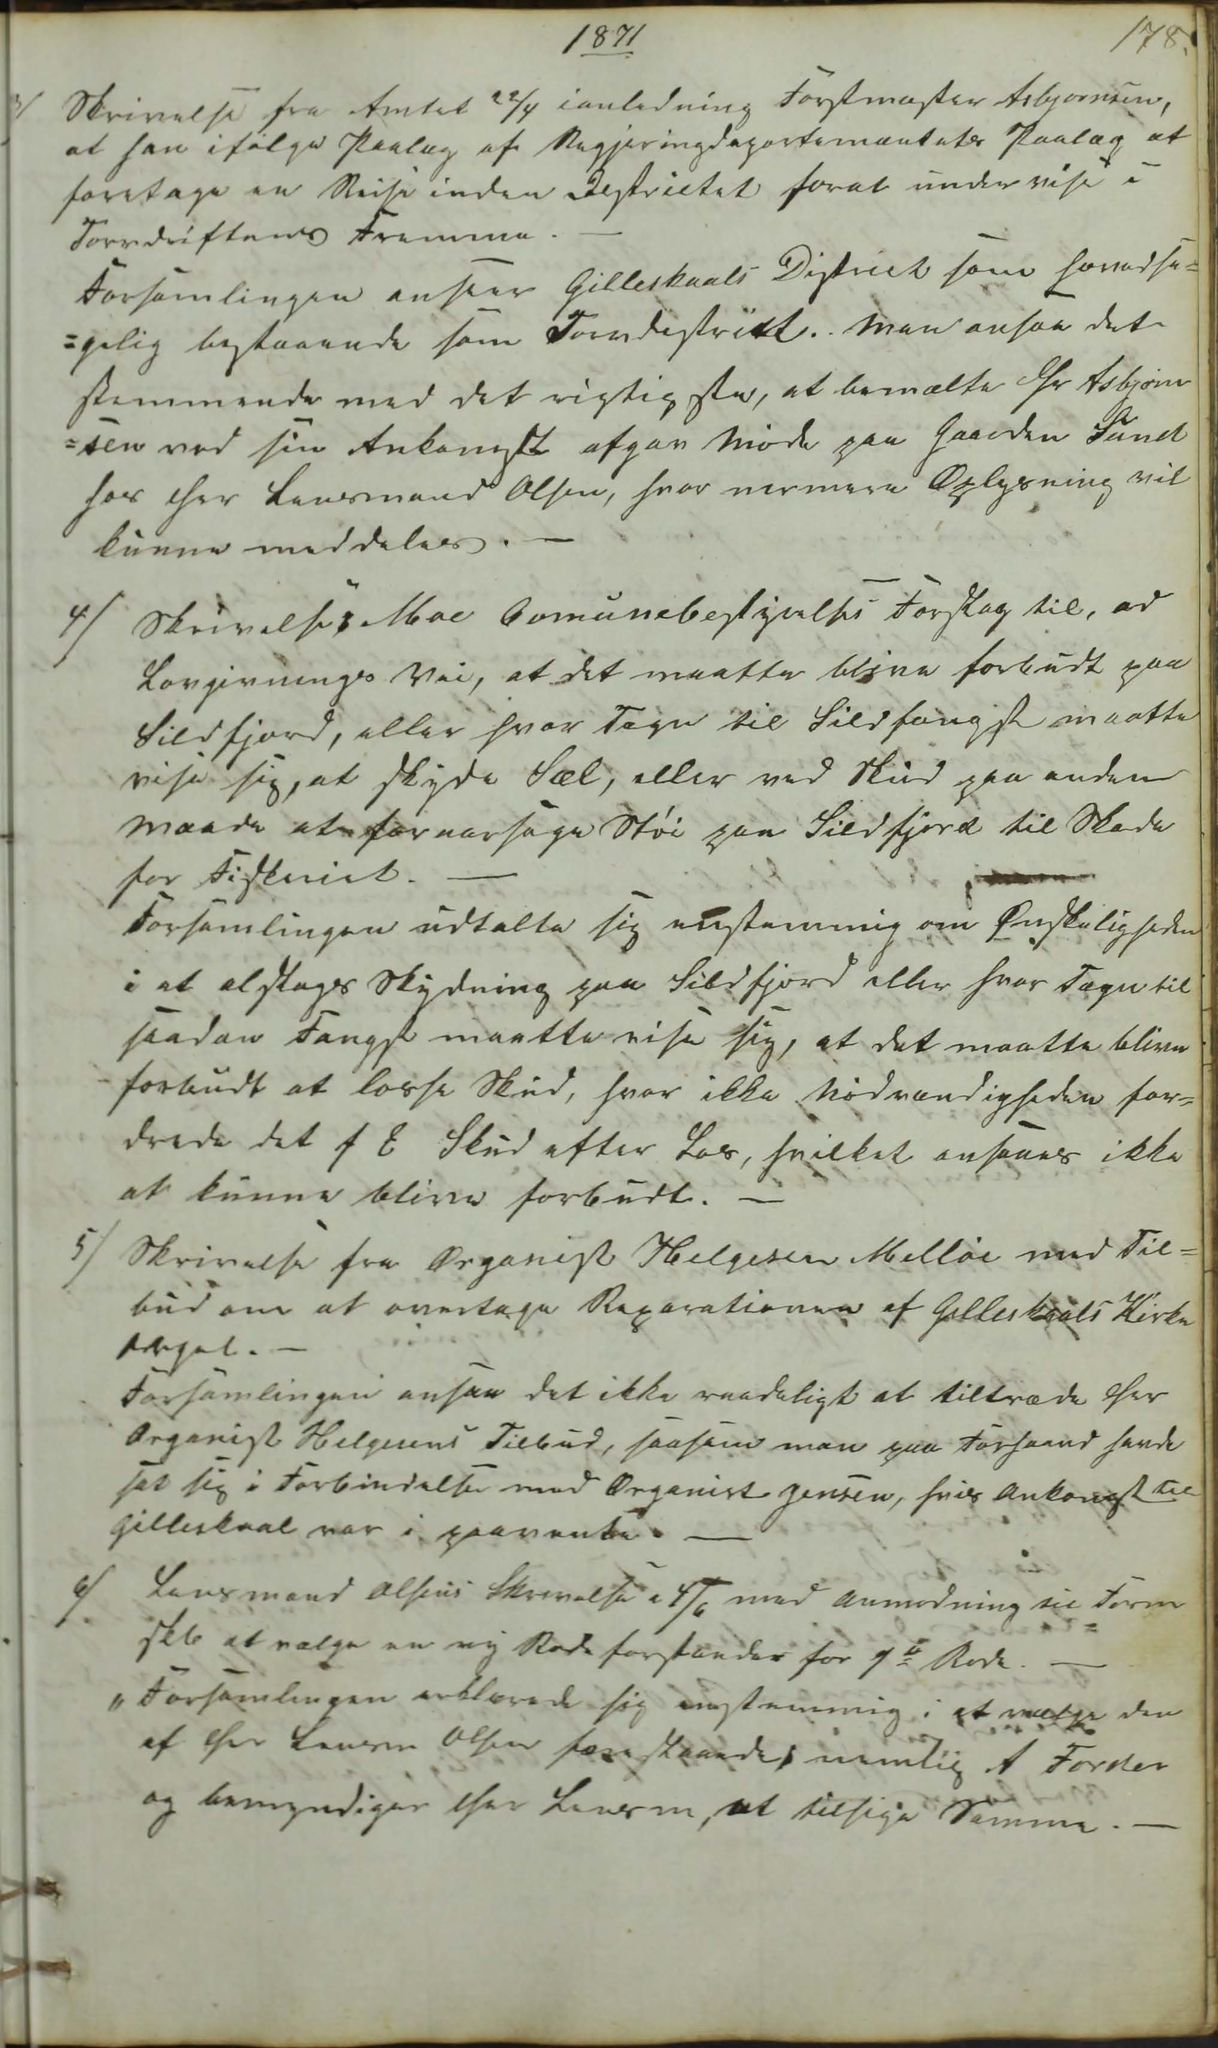 1871
178.
3/ Skrivelse fra Amtet 22/4 ianledning Forstmester Asbjørnsen,
at han ifølge Paalæg af Regjeringdepartementets Paalæg at
foretage en Reise inden Destrictet forat undervise i
Torvdriftens Fremme. —
Forsamlingen anseer Gilleskaals District som hovedsa=
=gelig bestaaende som Torvdestrikt. Man ansaa det
stemmende med det rigtigste, at bemælte Hr Asbjørn
=sen ved sin Ankomst afgav Møde paa Gaarden Sund
hos Herr Lensmand Olsen, hvor nermere Oplysning vil
kunne meddeles. —
4/ Skrivelse, Moe Comunebestyrelses Forslag til, ad
Lovgivnings Vei, at det maatte blive forbudt paa
Sildfjord, eller hvor Tegn til Sildfangst maatte
vise sig, at skyde Sæl, eller ved Skud paa anden
Maade at foraarsage Støi paa Sildfjord til Skade
for Fiskeriet. —
Forsamlingen udtalte sig enstemmig om Ønskeligheden
i at alslags Skydning paa Sildfjord eller hvor Tegn til
saadan Fangst maatte vise sig, at det maatte blive
forbudt at losse Skud, hvor ikke Nødvendigheden for=
drede det f E Skud efter Los, hvilket ansaaes ikke
at kunne blive forbudt. —
5/ Skrivelse fra Organist Helgesen Melløe med Til=
bud om at overtage Reparationen af Gilleskaals Kirke
Orgel. —
Forsamlingen ansaa det ikke raadeligt at tiltræde Herr
Organist Helgesens Tilbud, saasom man paa Forhaand havde
sat sig i Forbindelse med Organist Jensen, hvis Ankomst til
Gilleskaal var i paavente. —
6/ Lensmand Olsens Skrivelse a 4/6 med Anmodning til Form
skb at vælge en ny Rodeforstander for 9de Rode. —
" Forsamlingen erklærede sig enstemmig i at vælge den
af Herr Lensm Olsen foreslaaede, nemlig A
og bemyndiger Herr Lensm, at tilsige Samme. —